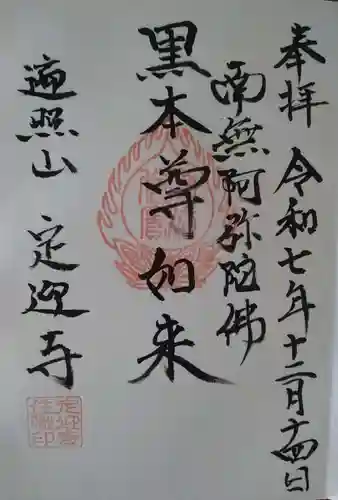 奉拝 令和七年十二月十四日
南無阿弥陀佛
黒本尊如来
遍照山 定迎寺